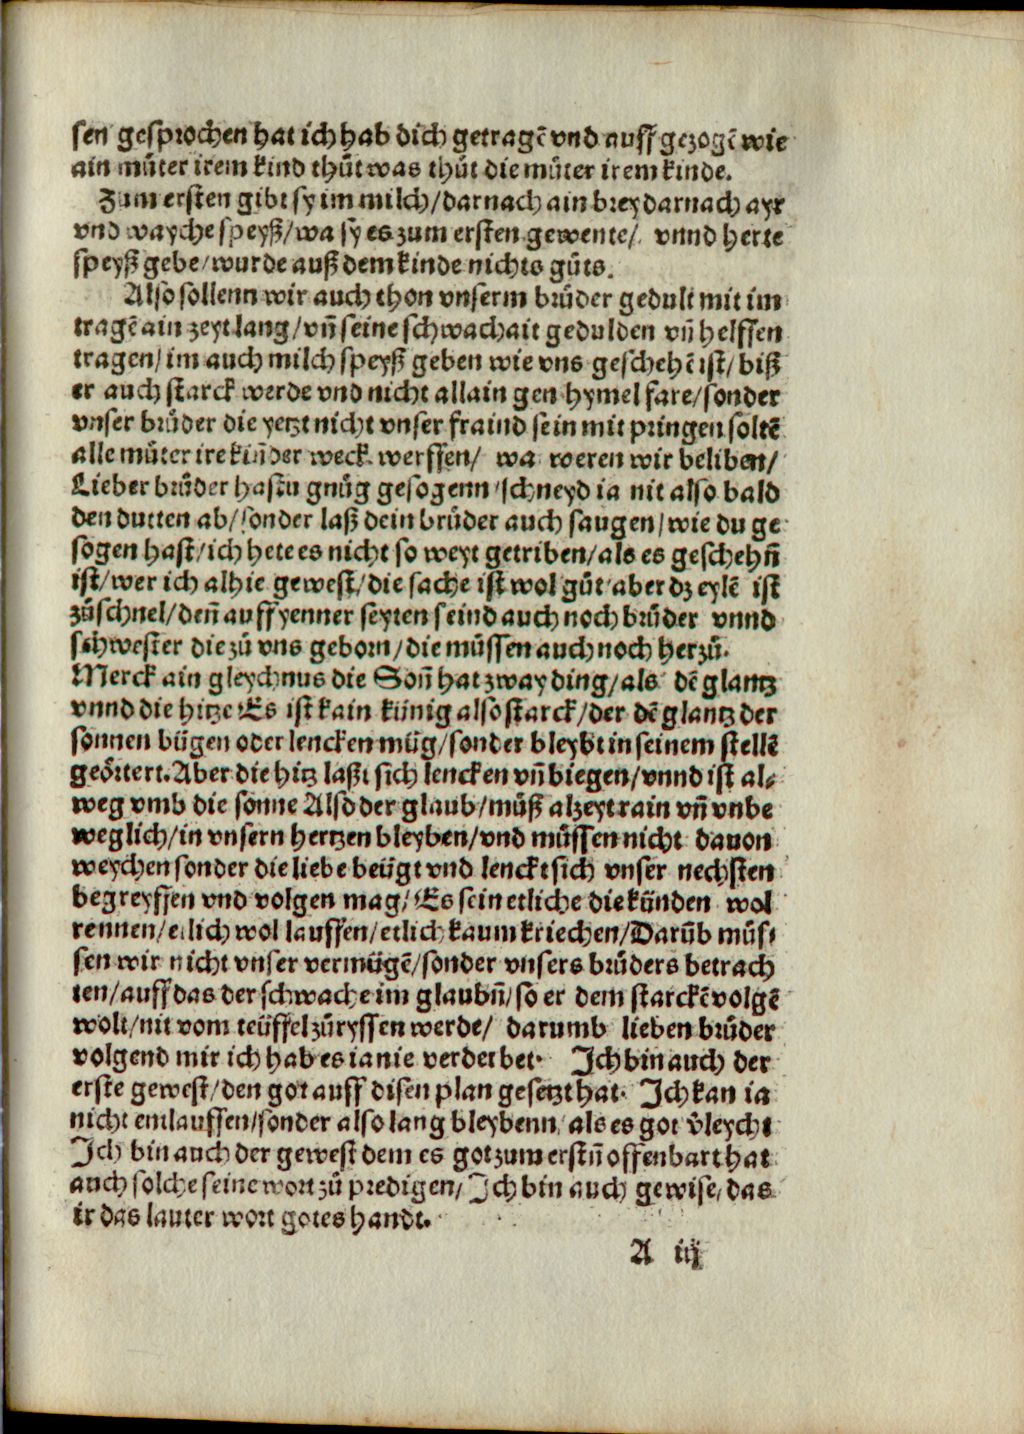 sen gesprochen hat ich hab dich getragē vnd auff gezogē wie
ain můter irem kind thůt was thůt die můter irem kinde.
Zum ersten gibt sy im milch/darnach ain brey darnach ayr
vnd wayche speyß/wa sy es zum ersten gewente/ vnnd herte
speyß gebe/wurde auß dem kinde nichts gůts.
Also sollenn wir auch thon vnserm brůder gedult mit im
tragē ain zeyt lang/vñ seine schwachait gedulden vñ helffen
tragen/im auch milch speyß geben wie vns geschehē ist/biß
er auch starck werde vnd nicht allain gen hymel fare/sonder
vnser brůder die yetzt nicht vnser fraind sein mit pringen soltē
alle můter ire kiñder weck werffen/ wa weren wir beliben/
Lieber brůder hastu gnůg gesogenn schneyd ia nit also bald
den dutten ab/sonder laß dein brůder auch saugen/wie du ge
sogen hast/ich hete es nicht so weyt getriben/als es geschehñ
ist/wer ich alhie gewest/die sache ist wol gůt aber dz eylē ist
zůschnel/deñ auff yenner seyten seind auch noch brůder vnnd
schwester die zů vns gehorn/die müssen auch noch herzů.
Merck ain gleychnus die Soñ hat zway ding/als dē glantz
vnnd die hitze Es ist kain künig also starck/der dē glantz der
sonnen bügen oder lencken müg/sonder bleybt in seinem stellē
geörtert. Aber die hitz laßt sich lencken vñ biegen/vnnd ist al⸗
weg vmb die sonne Also der glaub/můß alzeyt rain vñ vnbe
weglich/in vnsern hertzen bleyben/vnd müssen nicht dauon
weychen sonder die liebe beügt vnd lenckt sich vnser nechsten
begreyffen vnd volgen mag/Es sein etliche die künden wol
rennen/etlich wol lauffen/etlich kaum kriechen/Darůb müs⸗
sen wir nicht vnser vermügē/sonder vnsers brůders betrach
ten/auff das der schwache im glaubñ/so er dem starckē volgē
wolt/nit vom teüffel zůryssen werde/ darumb lieben brůder
volgend mir ich hab es ia nie verderbet. Ich bin auch der
erste gewest/den got auff disen plan gesetzt hat. Ich kan ia
nicht entlauffen/sonder also lang bleybenn/als es got v̊leycht
Ich bin auch der gewest dem es got zum erstñ offenbart hat
auch solche seine wort zů predigen/Ich bin auch gewise/das
ir das lauter wort gotes handt.
A iij